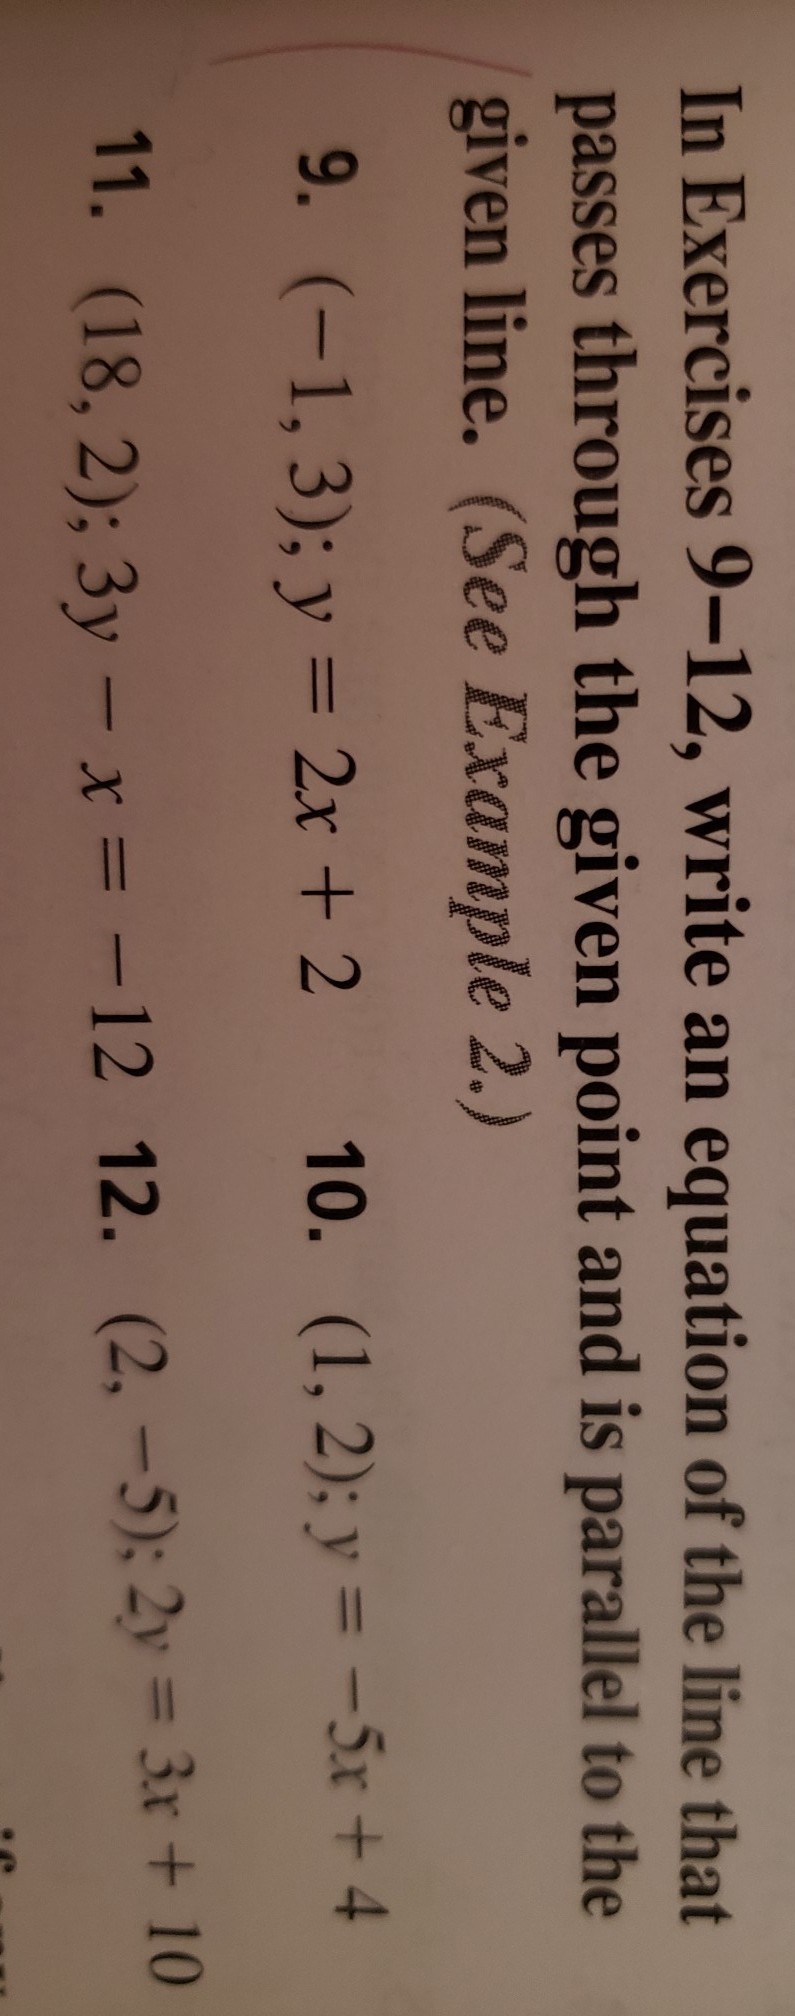 In Exercises 9–12, write an equation of the line that
passes through the given point and is parallel to the
given line. (See Example 2.)
9. (−1, 3); y = 2x + 2 10. (1, 2); y = −5x + 4
11. (18, 2); 3y − x = −12 12. (2, −5); 2y = 3x + 10